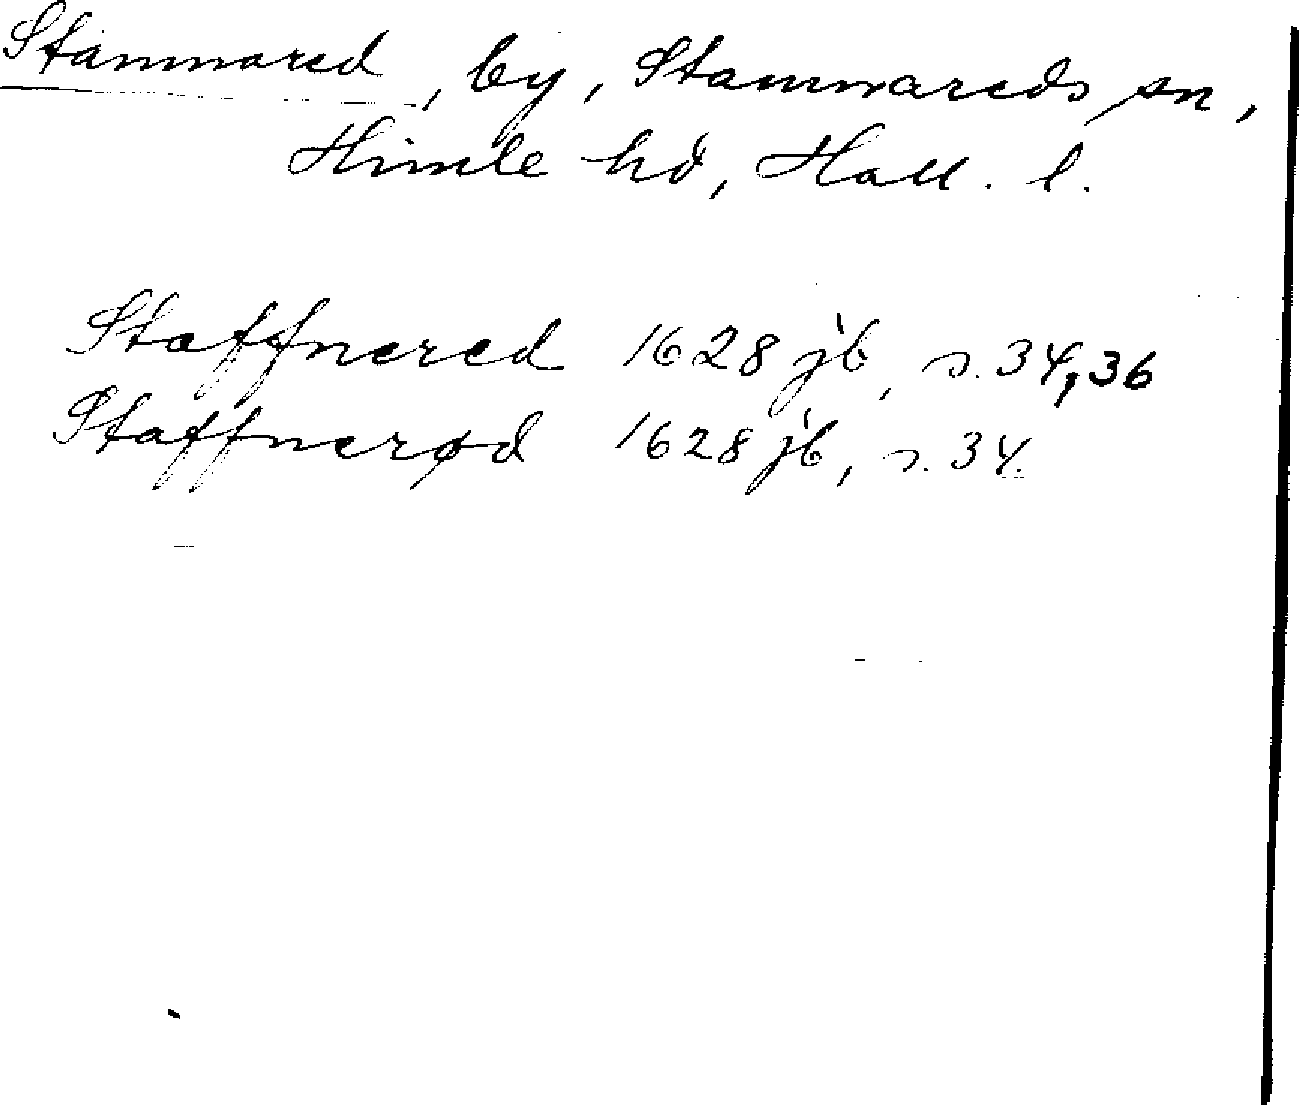 Stamnared, by, Stamnareds sn,
Himle hd, Hall. l.
Staffnered 1628 jb, s. 34, 36
Staffnerød 1628 jb, s. 34.